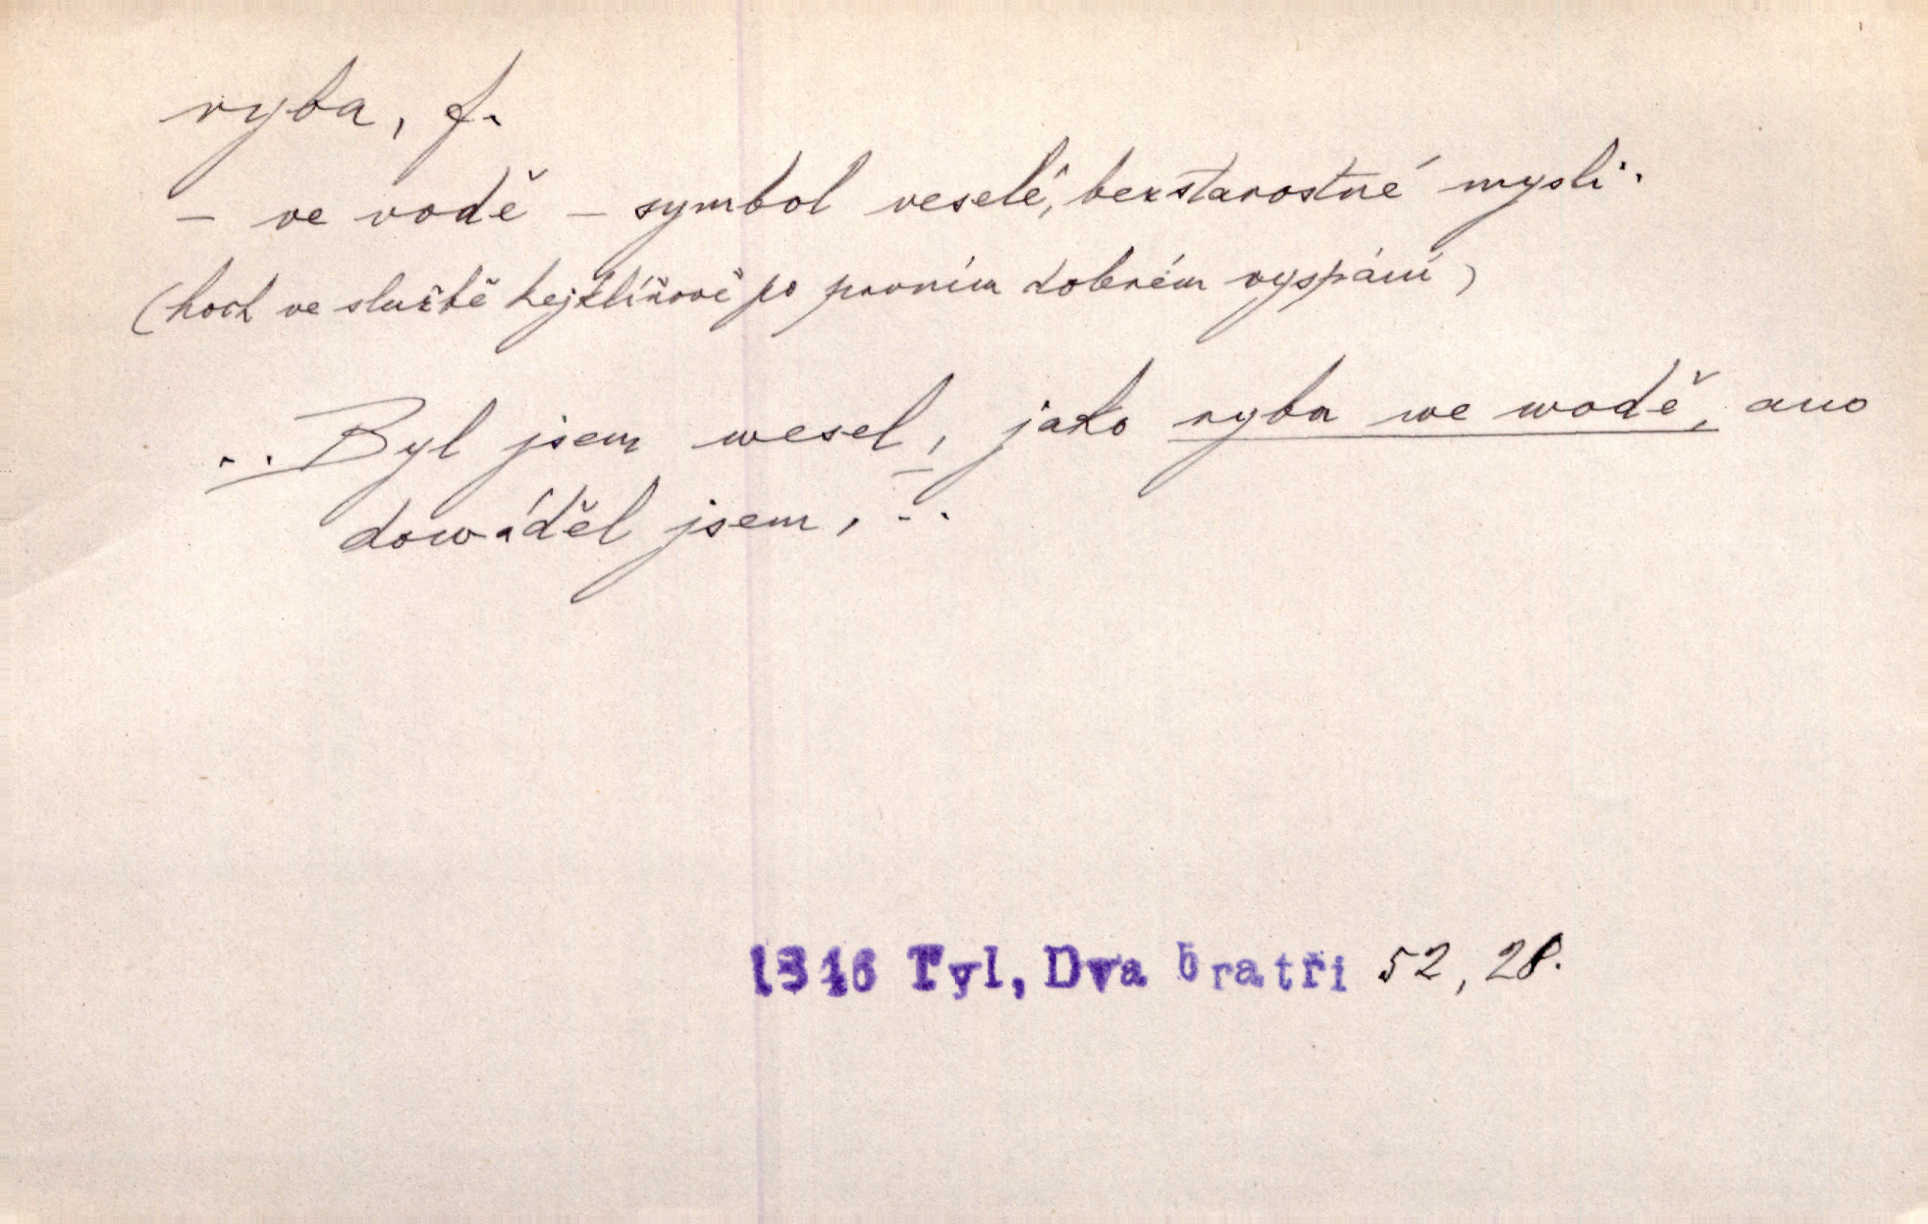 ryba, f.
– ve vodě – symbol veselé, bezstarostné mysli.
(hoch ve službě hejtlířově po prvním dobrém vyspání)
.. Byl jsem wesel, jako ryba we wodě, ano
dowáděl jsem, ..
1846 Tyl, Dva bratři 52, 28.